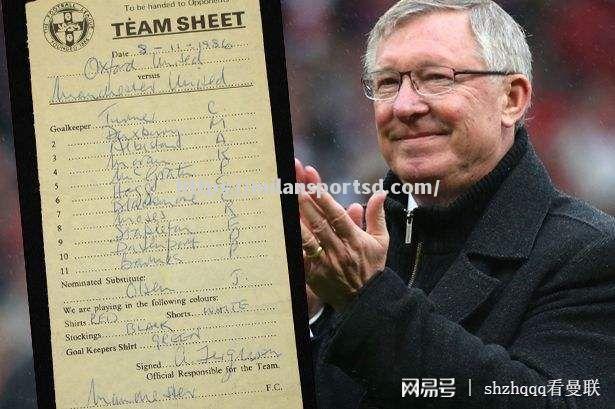 To be handed to Opponents
TEAM SHEET
Date 8-11-1986
Oxford United
versus
Manchester United
Goalkeeper Turner C
2 Duxbury M
3 Albiston A
4 Moran K
5 McGrath P
6 Hogg G
7 Blackmore C
8 Moses R
9 Stapleton F
10 Davenport P
11 Barnes P
Nominated Substitute:
Olsen J
We are playing in the following colours:
Shirts RED Shorts WHITE
Stockings BLACK
Goal Keepers Shirt GREEN
Signed A Ferguson
Official Responsible for the Team.
Manchester F.C.
milansportsd.com/
网易号 shzhqqq看曼联